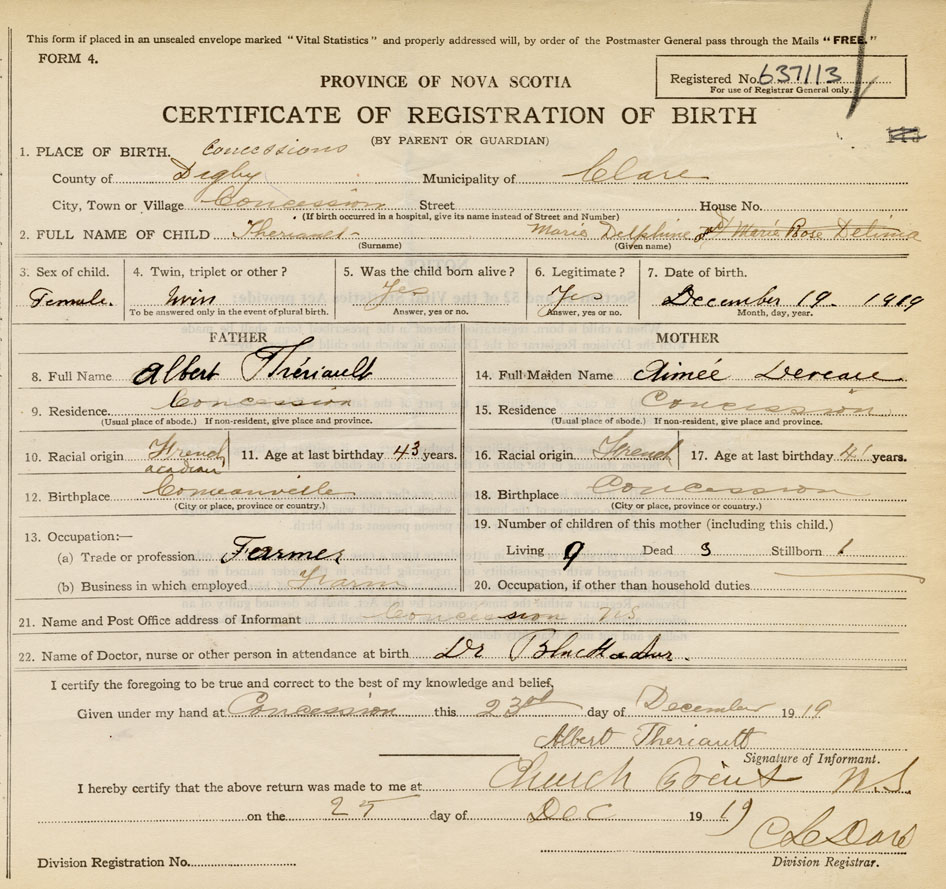 This form if placed in an unsealed envelope marked "Vital Statistics" and properly addressed will, by order of the Postmaster General pass through the Mails "FREE."
FORM 4.
Registered No. 637113
For use of Registrar General only.
PROVINCE OF NOVA SCOTIA
CERTIFICATE OF REGISTRATION OF BIRTH
(BY PARENT OR GUARDIAN)
1. PLACE OF BIRTH. Concessions
County of Digby Municipality of Clare
City, Town or Village Concession Street House No.
(If birth occurred in a hospital, give its name instead of Street and Number)
2. FULL NAME OF CHILD Theriault Marie Delphine and Marie Rose Delima
(Surname) (Given name)
3. Sex of child. 4. Twin, triplet or other? 5. Was the child born alive? 6. Legitimate? 7. Date of birth.
Female. twin Yes Yes December 19. 1919
To be answered only in the event of plural birth. Answer, yes or no. Answer, yes or no. Month, day, year.
FATHER MOTHER
8. Full Name Albert Thériault 14. Full Maiden Name Aimée
9. Residence. Concession 15. Residence Concession
(Usual place of abode.) If non-resident, give place and province. (Usual place of abode.) If non-resident, give place and province.
10. Racial origin French 11. Age at last birthday 43 years. 16. Racial origin French 17. Age at last birthday 41 years.
acadian
12. Birthplace Comeauville 18. Birthplace Concession
(City or place, province or country.) (City or place, province or country.)
13. Occupation:— 19. Number of children of this mother (including this child.)
(a) Trade or profession Farmer Living 9 Dead 3 Stillborn 1
(b) Business in which employed Farm 20. Occupation, if other than household duties
21. Name and Post Office address of Informant Concession NS
22. Name of Doctor, nurse or other person in attendance at birth Dr Blackadar.
I certify the foregoing to be true and correct to the best of my knowledge and belief,
Given under my hand at Concession this 23rd day of December 1919
Albert Theriault
Signature of Informant.
I hereby certify that the above return was made to me at Church Point N.S.
on the 25 day of Dec 1919
Division Registration No. Division Registrar.